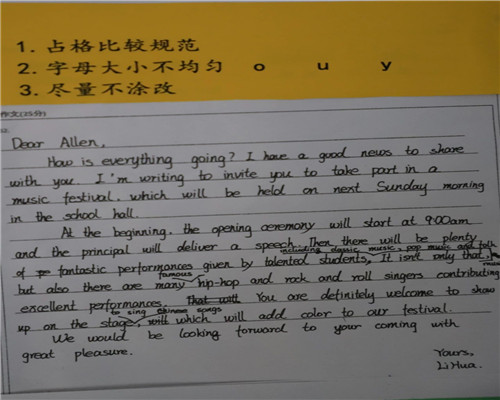 1. 占格比较规范
2. 字母大小不均匀 o u y
3. 尽量不涂改
作文(25分)
Dear Allen,
How is everything going? I have a good news to share
with you. I'm writing to invite you to take part in a
music festival, which will be held on next Sunday morning
in the school hall.
At the beginning, the opening ceremony will start at 9:00am
and the principal will deliver a speech. Then there will be plenty
including classic music, pop music and folk
of fantastic performances given by talented students. It isn't only that,
famous
but also there are many hip-hop and rock and roll singers contributing
excellent performances. That will You are definitely welcome to show
to sing Chinese songs
up on the stage, will which will add color to our festival.
We would be looking forward to your coming with
great pleasure.
Yours,
Li Hua.